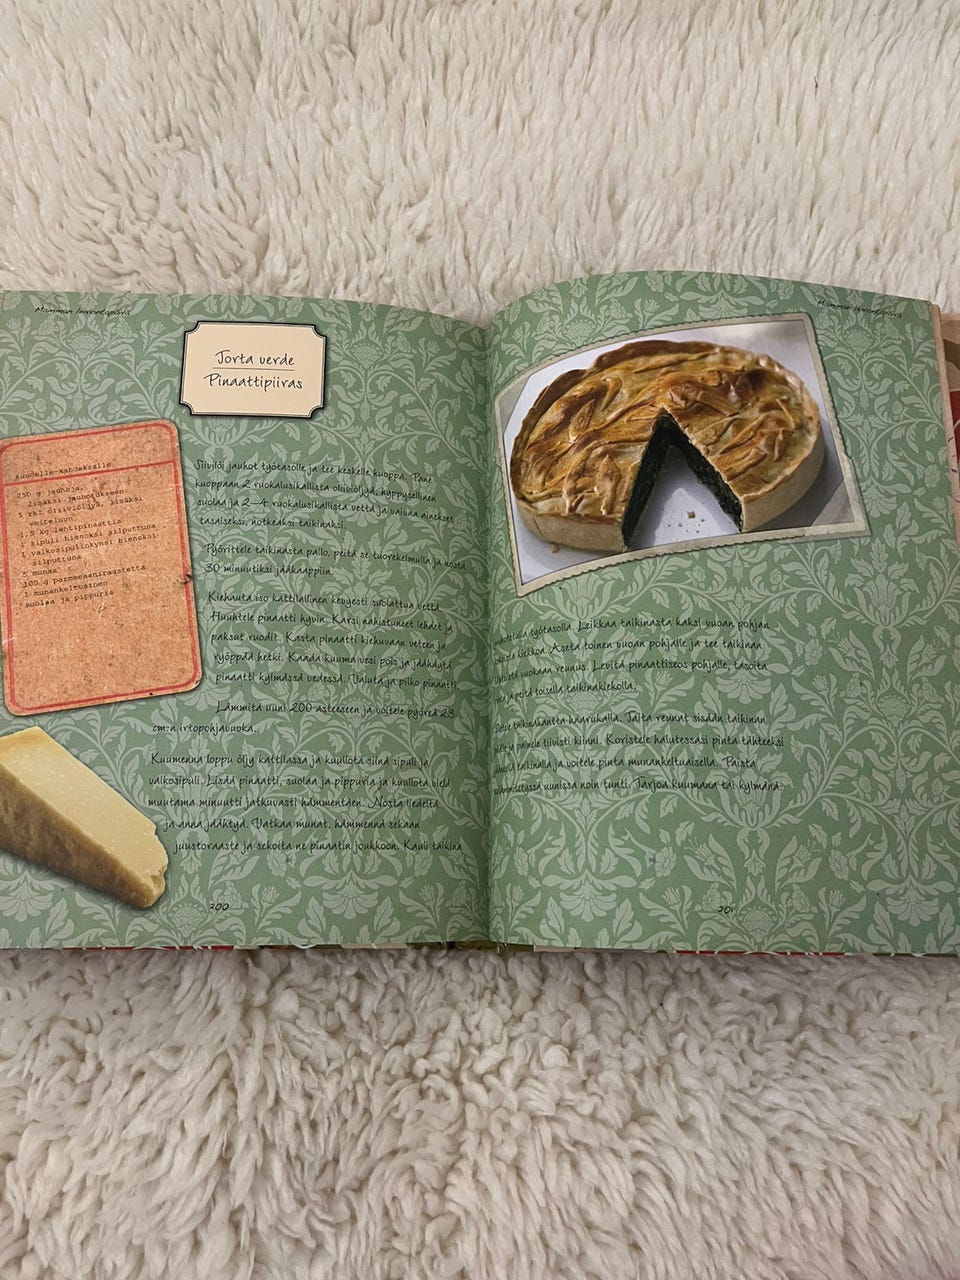 Mamman
Torta verde
Pinaattipiiras
Kuudelle-kahdeksalle
250 g jauhoja,
lisäksi jauhotukseen
5 rkl öljyä, lisäksi
voiteluun
1,5 kg lehtipinaattia
1 sipuli hienoksi silputtuna
1 valkosipulinkynsi hienoksi
silputtuna
5 munaa
100 g parmesaaniraastetta
1 munankeltuainen
suolaa ja pippuria
Siivilöi jauhot työtasolle ja tee keskelle kuoppa. Pane
kuoppaan 2 ruokalusikallista oliiviöljyä, hyppysellinen
suolaa ja 2–4 ruokalusikallista vettä ja vaivaa ainekset
tasaiseksi, notkeaksi taikinaksi.
Pyörittele taikinasta pallo, peitä se tuorekelmulla ja nosta
30 minuutiksi jääkaappiin.
Kiehauta iso kattilallinen kevyesti suolattua vettä.
Huuhtele pinaatti hyvin. Karsi nahistuneet lehdet ja
paksut ruodit. Kasta pinaatti kiehuvaan veteen ja
ryöppää hetki. Kaada kuuma vesi pois ja jäähdytä
pinaatti kylmässä vedessä. Valuta ja pilko pinaatti.
Lämmitä uuni 200 asteeseen ja voitele pyöreä 23
cm:n irtopohjavuoka.
Kuumenna loppu öljy kattilassa ja kuullota siinä sipuli ja
valkosipuli. Lisää pinaatti, suolaa ja pippuria ja kuullota vielä
muutama minuutti jatkuvasti hämmentäen. Nosta liedeltä
ja anna jäähtyä. Vatkaa munat, hämmennä sekaan
juustoraaste ja sekoita ne pinaatin joukkoon. Kauli taikina
200
Mamman
työtasolla. Leikkaa taikinasta kaksi vuoan pohjan
kiekkoa. Aseta toinen vuoan pohjalle ja tee taikinan
vuokaan reunus. Levitä pinaattiseos pohjalle, tasoita
ja peitä toisella taikinakiekolla.
taikinakantta haarukalla. Taita reunat sisään taikinan
ja painele tiiviisti kiinni. Koristele halutessasi pinta tähteeksi
taikinalla ja voitele pinta munankeltuaisella. Paista
uunissa noin tunti. Tarjoa kuumana tai kylmänä.
201